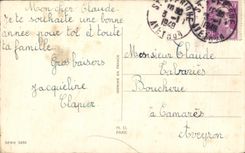 Mon cher Claude
Je te souhaite une bonne
année pour toi et toute
ta famille
Gros baisers
Jacqueline
Clapier
Monsieur Claude
Boucherie
à Camarès
Aveyron
AVEYRON
1949
M. D.
PARIS